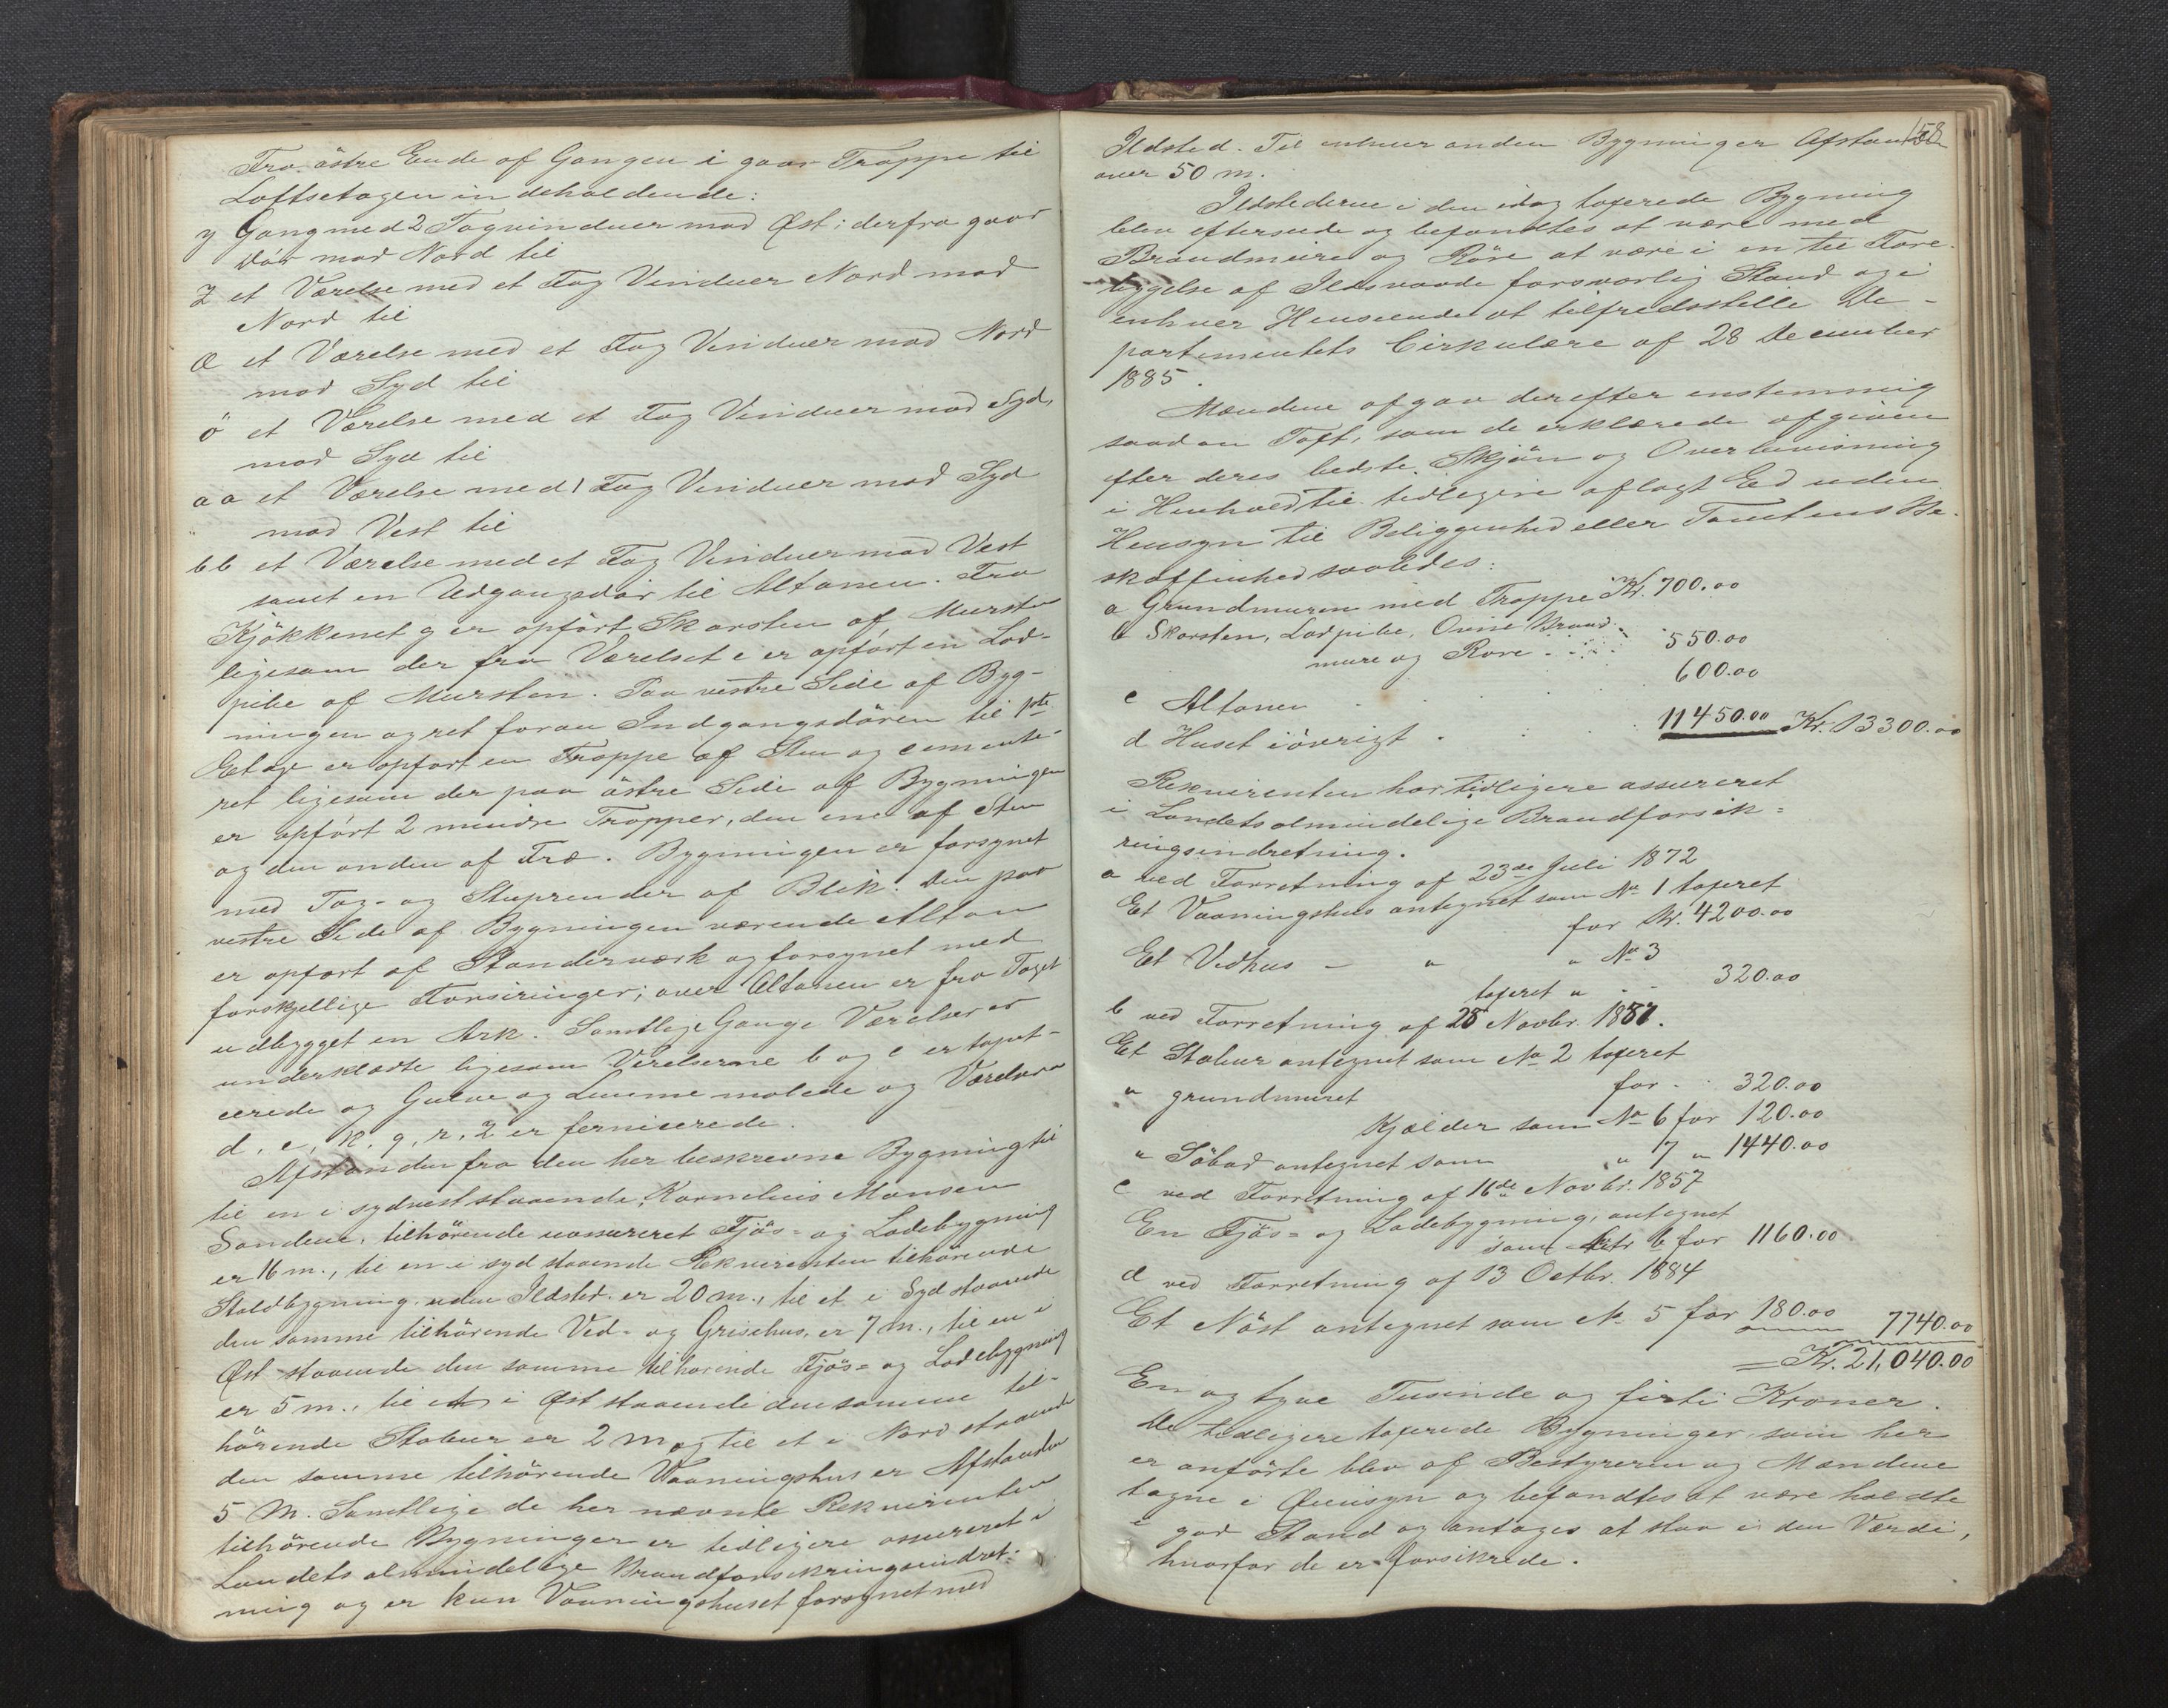 Fra östre Ende af Gangen i gaar Trappe til
Loftsetagen indeholdende:
y Gang med 2 Tagvinduer mod Øst; derfra gaar
Dör mod Nord til
z et Værelse med et Fag Vinduer Nord mod
Nord til
æ et Værelse med et Fag Vinduer mod Nord
mod Syd til
ö et Værelse med et Fag Vinduer mod Syd,
mod Syd til
aa et Værelse med 1 Fag Vinduer mod Syd
mod Vest til
bb et Værelse med et Fag Vinduer mod Vest
samt en Udgangsdör til Altanen. Fra
Kjökkenet g er opfört Skorsten af Mursten
ligesom der fra Værelset i er opfört en Lod-
pibe af Mursten. Paa vestre Side af Byg-
ningen og ret foran Indgangsdören til 1ste
Etage er opfört en Trappe af Sten og cemente-
ret ligesom der paa östre Side af Bygningen
er opfört 2 mindre Trapper, den ene af Sten
og den anden af Træ. Bygningen er forsynet
med Tag- og Stuprender af Blik. Den paa
vestre Side af Bygningen værende Altan
er opfört af Standerværk og forsynet med
forskjellige Forsiringer; over Altanen er fra Taget
udbygget en Ark. Samtlige Gange Værelser er
underklædte ligesom Værelserne b og c er tapet-
cerede og Gulve og Lemme malede og Værelserne
d, e, k, q, r, z er fernicerede.
Afstanden fra den her beskrevne Bygning til
til en i sydvest staaende, Kornelius Monsen
Sandene, tilhörende uassureret Fjös- og Ladebygning
er 16 m., til en i syd staaende Rekvirenten tilhörende
Staldbygning uden Ildsted er 20 m., til et i Syd staaende
den samme tilhörende Ved- og Grisehus, er 7 m., til en i
Øst staaende den samme tilhörende Fjös- og Ladebygning
er 5 m., til et i Øst staaende den samme til-
hörende Stabur er 2 m og til et i Nord staaende
den samme tilhörende Vaaningshus er Afstanden
5 M. Samtlige de her nævnte Rekvirenten
tilhörende Bygninger er tidligere assureret i
Landets almindelige Brandforsikringsindret-
ning og er kun Vaaningshuset forsynet med
158
Ildsted. Til enhver anden Bygninger Afstanden
over 50 m.
Ildstederne i den idag taxerede Bygning
blev efterseede og befandtes at være med
Brandmure og Röre at være i en til Fore-
byggelse af Ildsvaade forsvarlig Stand og i
enhver Henseende at tilfredsstille De-
partementets Cirkulære af 28 December
1885.
Mændene afgav derefter enstemmig
saadan Taxt, som de erklærede afgiven
efter deres bedste Skjön og Overbevisning
i Henhold til tidligere aflagt Ed uden
Hensyn til Beliggenhed eller Tomtens Be-
skaffenhed saaledes:
a Grundmuren med Trappe Kr. 700.00
b Skorsten, Lodpibe, Ovne Brand-
mure og Röre . . . 550.00
c Altanen . . . 600.00
d Huset iövrigt . . . 11450.00 Kr. 13300.00
Rekvirenten har tidligere assureret
i Landets almindelige Brandforsik-
ringsindretning.
a ved Forretning af 23de Juli 1872
Et Vaaningshus antegnet som No 1 taxeret
for Kr. 4200.00
Et Vedhus — " " No 3
taxeret " - - 320.00
b ved Forretning af 28 Novbr. 1887.
Et Stabur antegnet som No 2 taxeret
for . . 320.00
" grundmuret
Kjælder som No 6 for 120.00
" Söbod antegnet som " 7 " 1440.00
c ved Forretning af 16de Novbr. 1857
En Fjös- og Ladebygning, antegnet
som Litr b for 1160.00
d ved Forretning af 13 Octbr. 1884
Et Nöst antegnet som No 5 for 180.00 7740.00
Kr. 21,040.00
En og tyve Tusinde og firti Kroner.
De tidligere taxerede Bygninger som her
er anförte blev af Bestyreren og Mændene
tagne i Øiensyn og befandtes at være holdte
i god Stand og antages at staa i den Værdi,
hvorfor de er forsikrede.